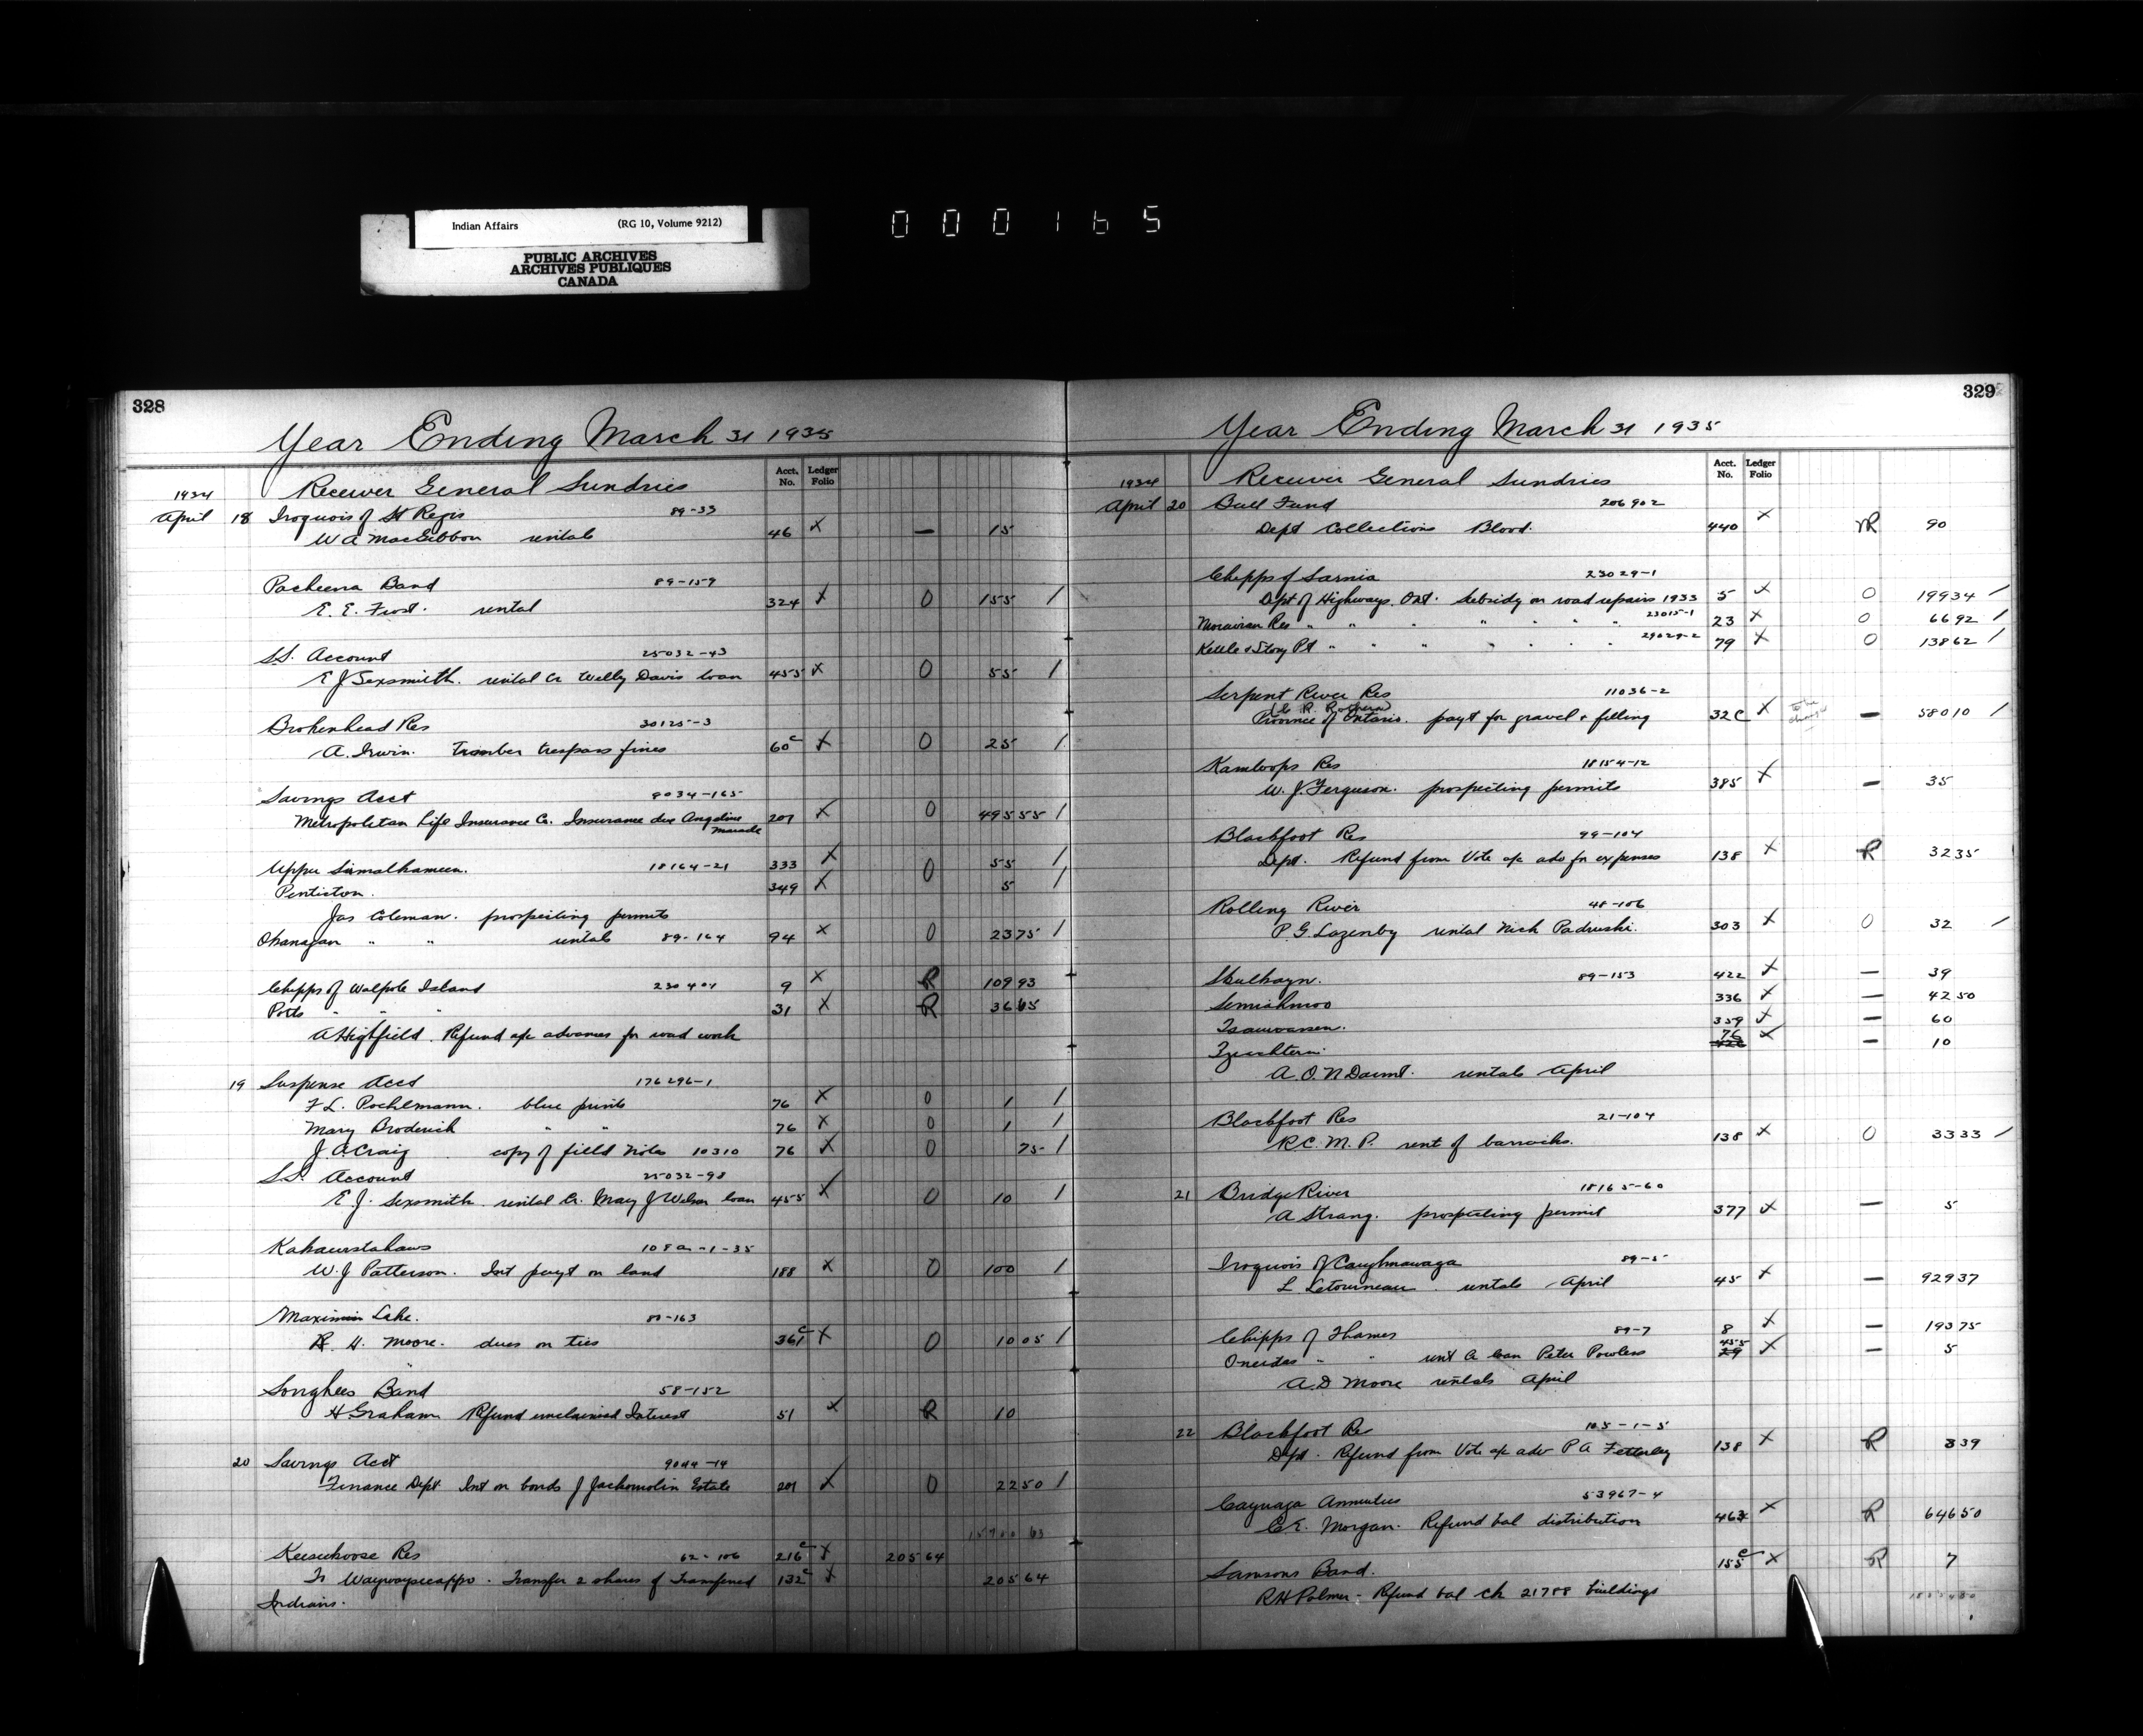 Indian Affairs (RG 10, Volume 9212)
PUBLIC ARCHIVES
ARCHIVES PUBLIQUES
CANADA
000165
328
Year Ending March 31 1935
Acct. No. Ledger Folio
1934 Receiver General Sundries
April 18 Iroquois of St Regis 89-33
W A MacGibbon rentals 46 x — 15
Pacheena Band 89-159
E. E. Frost. rental 324 x 0 155 /
S.S. Account 25032-43
E J Sexsmith. rental Cr Welly Davis loan 455 x 0 55 /
Brokenhead Res 30125-3
A. Irwin. Timber trespass fines 60c x 0 25 /
Savings Acct 9034-165
Metropolitan Life Insurance Co. Insurance due Angeline Maracle 201 x 0 495 55 /
Upper Similkameen. 18164-21 333 x 0 55 /
Penticton. 349 x 5 /
Jas Coleman. prospecting permits
Okanagan " " rentals 89-164 94 x 0 23 75 /
Chipps of Walpole Island 230401 9 x R 109 93
Potts " " " 31 x R 36 65
A Highfield. Refund a/c advances for road work
19 Suspense Acct 176296-1
F L. Pochlmann. blue prints 76 x 0 1 /
Mary Broderick " " 76 x 0 1 /
J. A. Craig copy of field notes 10310 76 x 0 75 /
S.S. Account 25032-98
E J. Sexsmith. rental Cr. Mary J Wilson loan 455 x 0 10 /
Kahkewistahaws 108a-1-35
W. J Patterson. Int payt on land 188 x 0 100 /
Maximin Lake. 89-163
R. H. Moore. dues on ties 361c x 0 10 05 /
Songhees Band 58-152
H Graham Refund unclaimed Interest 51 x R 10
20 Savings Acct 9044-14
Finance Dept Int on bonds J Jackomolin Estate 201 x 0 22 50 /
Keeseekoose Res 62-106 216c x 205 64
To Waywayseecappo. Transfer 2 shares of Transferred 132c x 205 64
Indians.
329
Year Ending March 31 1935
Acct. No. Ledger Folio
1934 Receiver General Sundries
April 20 Bull Fund 206902
Dept Collections Blood. 440 x R 90
Chipps of Sarnia 23029-1
Dept of Highways. Ont. Subsidy on road repairs 1933 5 x 0 199 34 /
Moravian Res " " " " " " 23015-1 23 x 0 66 92 /
Kettle & Stony Pt " " " " " " 29029-2 79 x 0 138 62 /
Serpent River Res 11036-2
Province of Ontario. payt for gravel & filling 32c x to be changed — 580 10 /
Kamloops Res 18154-12
W. J. Ferguson. prospecting permits 385 x — 35
Blackfoot Res 99-104
Dept. Refund from Vote a/c adv for expenses 138 x R 32 35
Rolling River 48-106
P. G. Lazenby rental Nick Padruski. 303 x 0 32 /
Skulkayn. 89-153 422 x — 39
Semiahmoo 336 x — 42 50
Tsawwassen. 359 x — 60
Tzeachten. 76 x — 10
A. O. N Daunt. rentals April
Blackfoot Res 21-104
R.C.M.P. rent of barracks. 138 x 0 33 33 /
21 Bridge River 18165-60
A Strang. prospecting permit 377 x — 5
Iroquois of Caughnawaga 89-5
L Letourneau. rentals April 45 x — 929 37
Chipps of Thames 89-7 8 x — 193 75
Oneidas " " rent Cr loan Peter Powless 455 x — 5
A. D Moore rentals April
22 Blackfoot Res 105-1-5
Dept. Refund from Vote a/c adv P A Fetterley 138 x R 3 39
Cayuga Annuities 53967-4
C. E. Morgan. Refund bal distribution 463 x R 646 50
Samsons Band. 155c x R 7
R H Palmer - Refund bal ck 21788 buildings